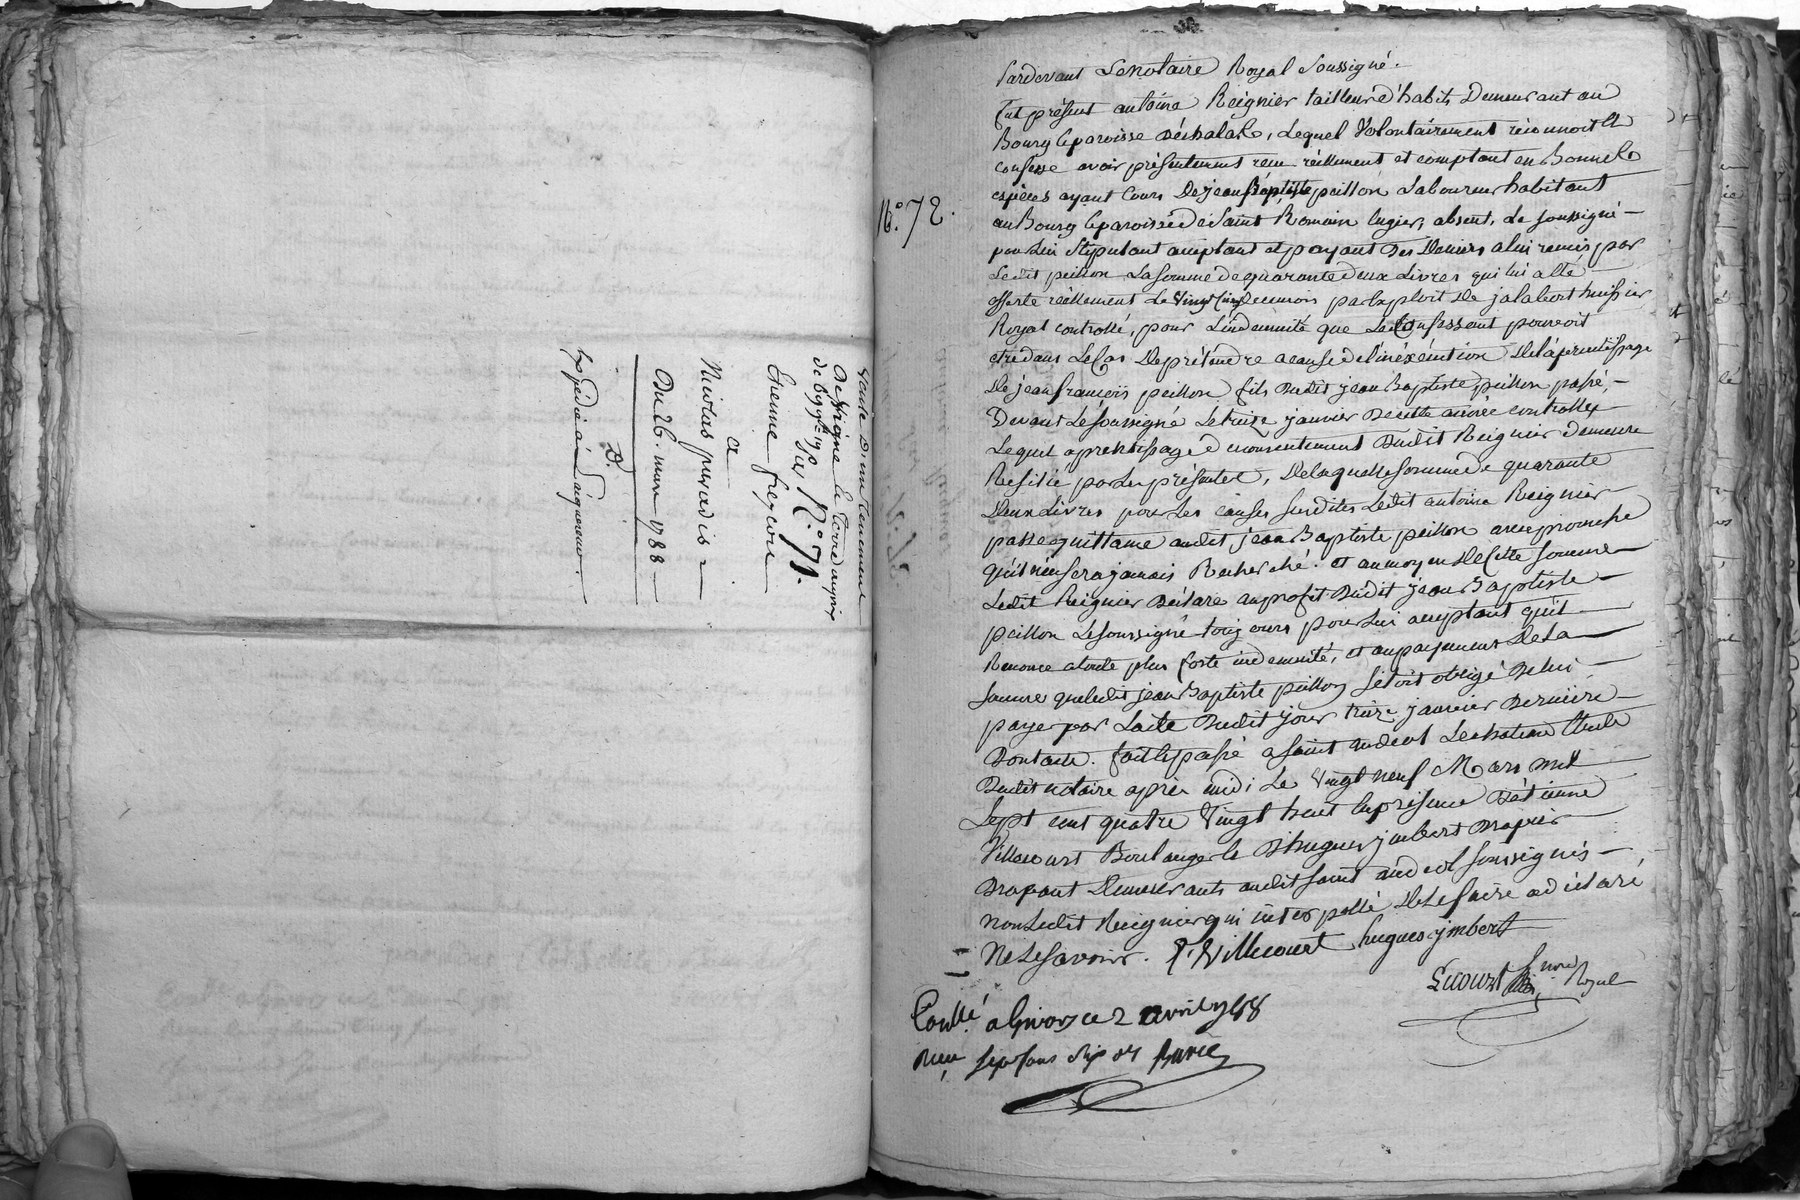 Vente d'un tenement
De Vigne et terre au prix
de 699# 19s Par
N.° 71.
Etienne freycon
a
Nicolas paradis
Du 26. mars 1788
D.
Expédié à
N.° 72.
Pardevant Le notaire Royal soussigné.
fut présent antoine Reignier tailleur d'habits Demeurant au
Bourg & paroisse déchalas, Lequel Volontairement reconnoit et
confesse avoir présentement reçu réellement et comptant en Bonnes
espèces ayant Cours De jean Baptiste peillon Laboureur habitant
au Bourg & paroisse de Saint Romain en gier, absent, Le soussigné
pour Lui stipulant acceptant et payant Des Deniers a lui remis par
Le dit peillon La somme de quarante deux Livres qui lui a été
offerte réellement Le Vingt cinq de ce mois par Exploit de jalabert huissier
Royal controllé, pour L'indemnité que Le Confessant pouvoit
être dans Le Cas De prétendre a cause de l'inéxécution De L'aprentissage
De jean françois peillon fils Dudit jean Baptiste peillon passé,
Devant Le soussigné Le treize janvier De cette année controllé
Lequel aprentissage du consentement Dudit Reignier demeure
Resilié par Les présentes, De Laquelle somme de quarante
Deux Livres pour Les causes susdites Ledit antoine Reignier
passe quittance audit jean Baptiste peillon avec promesse
qu'il n'en sera jamais Recherché. et au moyen De Cette somme
Ledit Reignier Déclare au profit Dudit jean Baptiste
peillon Le soussigné toujours pour Lui acceptant qu'il
Renonce a toute plus forte indemnité, et au payement De La
somme que Ledit jean Baptiste peillon s'étoit obligé De lui
payer par L'acte Dudit jour treize janvier Derniere
Dont acte. fait & passé a saint andeol Le chateau Etude
Dudit notaire après midi Le Vingt neuf Mars mil
sept cent quatre Vingt huit En présence D'étienne
Villecourt Boulanger & D'hugues jmbert Drapier
Drapant Demeurants audit saint andeol soussignés
non Ledit Reignier qui interpellé De Le faire a déclaré
Ne Le savoir. E. Villecourt hugues jmbert
Lecourt
nore Royal
Conllé a Givors ce 2 avril 1788
Reçu sept sous six drs